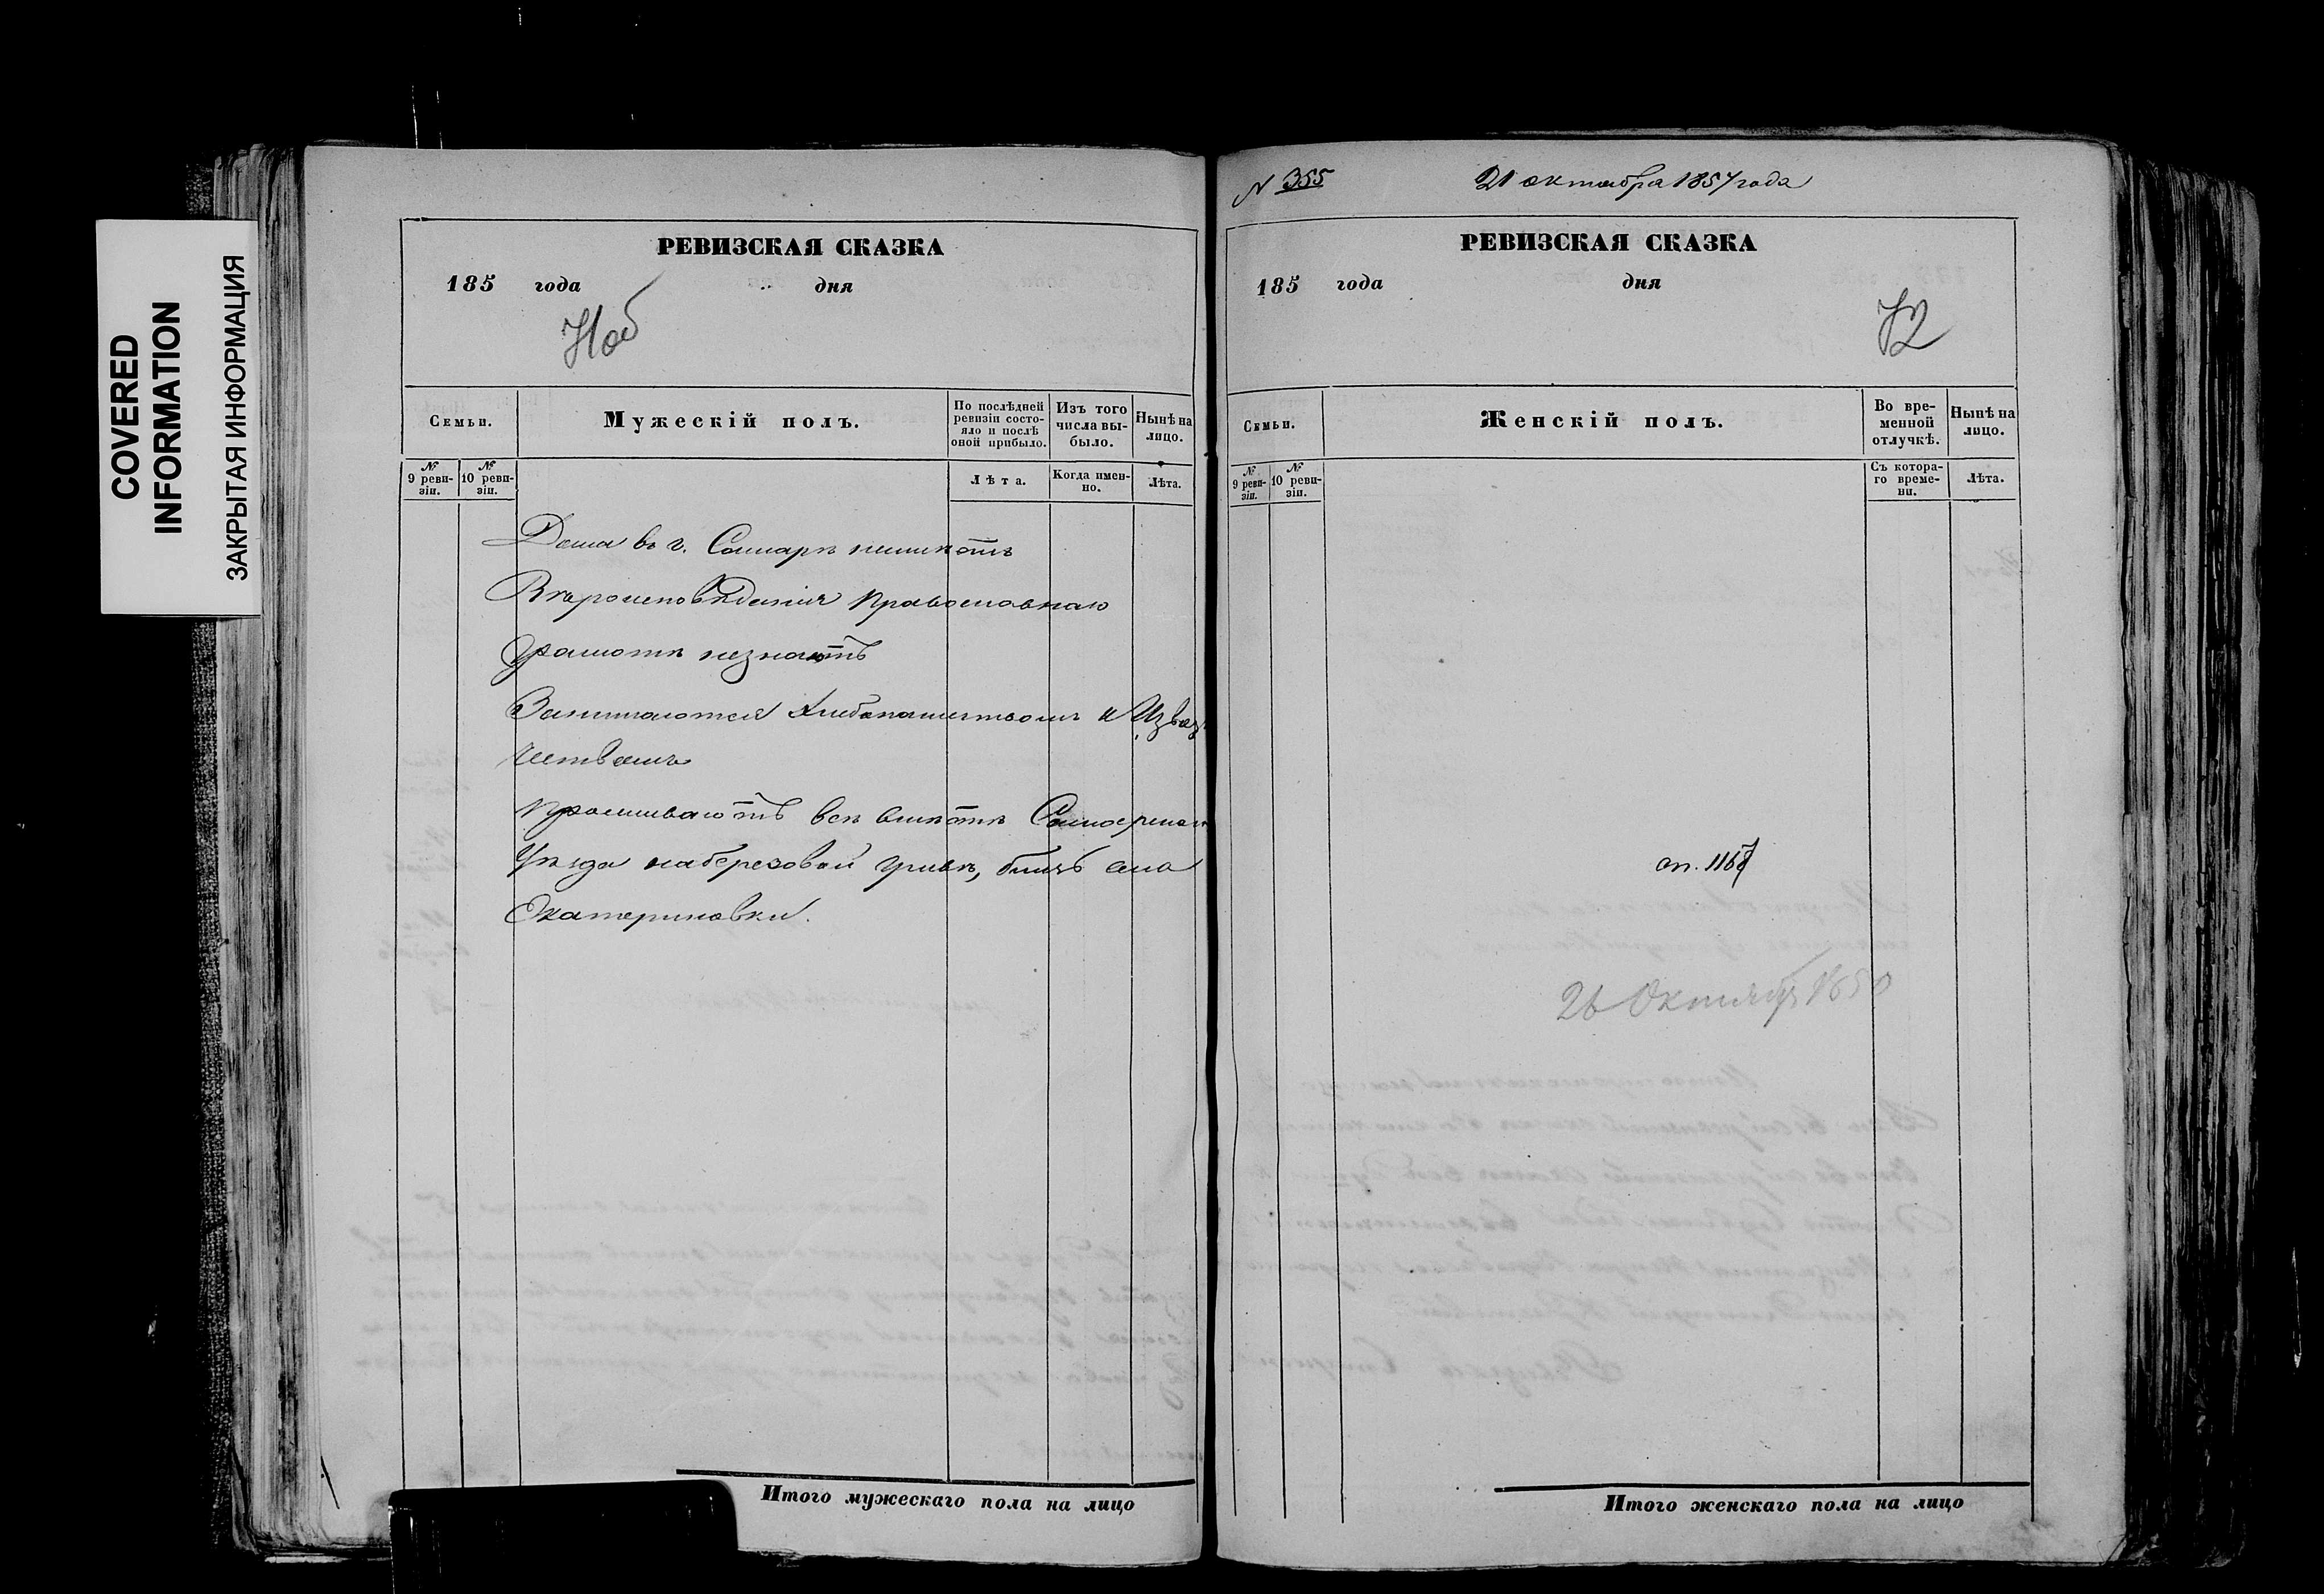 COVERED
INFORMATION
ЗАКРЫТАЯ ИНФОРМАЦИЯ
РЕВИЗСКАЯ СКАЗКА
185 года дня
Семьи.
Мужескій полъ.
По послѣдней ревизіи состояло и послѣ оной прибыло.
Изъ того числа выбыло.
Нынѣ на лицо.
№ 9 ревизіи.
№ 10 ревизіи.
Лѣта.
Когда именно.
Лѣта.
Дома въ г. Самарѣ неимѣютъ
Вѣроисповѣданія православнаго
Грамотѣ незнаютъ
Занимаются хлебопашествомъ и Извоз
чествомъ
проживаютъ всѣ вместѣ Самарскаго
Уѣзда наберезовой гривѣ, близь села
Екатериновки.
Итого мужескаго пола на лицо
N 355
21 октября 1857 года
РЕВИЗСКАЯ СКАЗКА
185 года дня
72
Семьи.
Женскій полъ.
Во временной отлучкѣ.
Нынѣ на лицо.
№ 9 ревизіи.
№ 10 ревизіи.
Съ котораго времени.
Лѣта.
26 Октября 1850
Итого женскаго пола на лицо